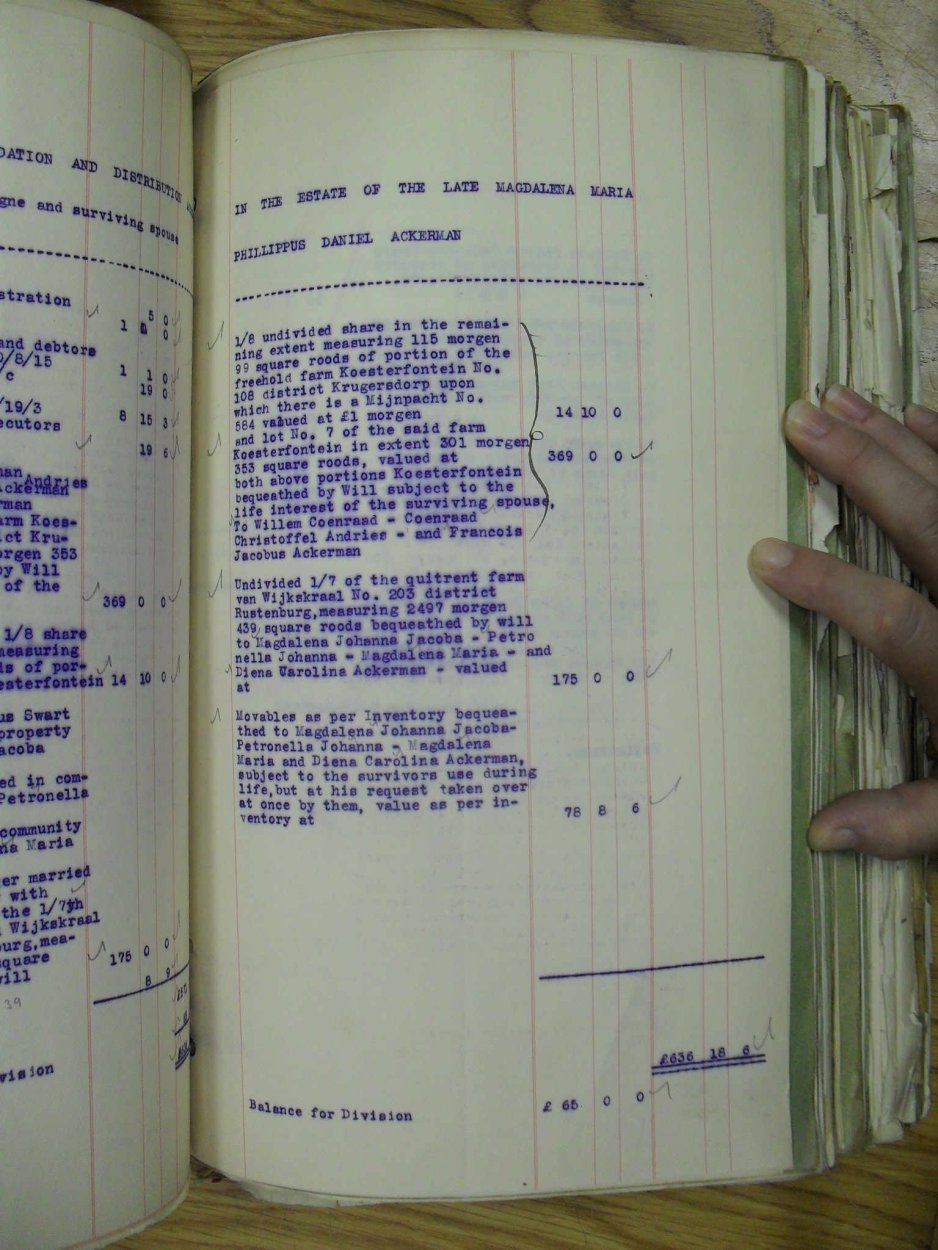 DATION AND DISTRIBUTION
gne and surviving spouse
stration
5 0
1 0
and debtors
0/8/15
/c
1 1 0
19 0
/19/3
ecutors
8 15 3
19 6
man
Andries
Ackerman
rman
arm Koes-
ict Kru-
orgen 353
by Will
of the
369 0 0
1/8 share
measuring
ds of por-
esterfontein 14 10 0
us Swart
property
acoba
ed in com-
Petronella
community
na Maria
er married
with
the 1/7th
Wijkskraal
burg,mea-
square
will
175 0 0
8 9
39
vision
IN THE ESTATE OF THE LATE MAGDALENA MARIA
PHILLIPPUS DANIEL ACKERMAN
1/8 undivided share in the remai-
ning extent measuring 115 morgen
99 square roods of portion of the
freehold farm Koesterfontein No.
108 district Krugersdorp upon
which there is a Mijnpacht No.
584 valued at £1 morgen 14 10 0
and lot No. 7 of the said farm
Koesterfontein in extent 301 morgen
353 square roods, valued at 369 0 0
both above portions Koesterfontein
bequeathed by Will subject to the
life interest of the surviving spouse,
To Willem Coenraad - Coenraad
Christoffel Andries - and Francois
Jacobus Ackerman
Undivided 1/7 of the quitrent farm
van Wijkskraal No. 203 district
Rustenburg,measuring 2497 morgen
439 square roods bequeathed by will
to Magdalena Johanna Jacoba - Petro
nella Johanna - Magdalena Maria - and
Diena Carolina Ackerman - valued
at 175 0 0
Movables as per Inventory bequea-
thed to Magdalena Johanna Jacoba-
Petronella Johanna - Magdalena
Maria and Diena Carolina Ackerman,
subject to the survivors use during
life,but at his request taken over
at once by them, value as per in-
ventory at 78 8 6
£636 18 6
Balance for Division £ 65 0 0